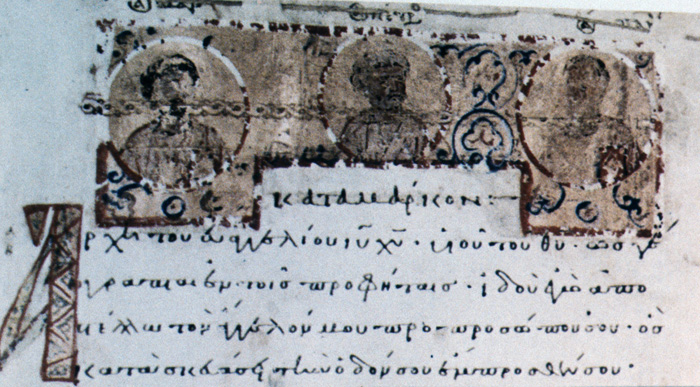 ΚΑΤΑ ΜΑΡΚΟΝ:
Ἀρχὴ τοῦ εὐαγγελίου ἰῦ χῦ· υἱοῦ τοῦ θῦ· ὡς γέ
γραπται ἐν τοῖς προφήταις· ἰδοὺ ἐγὼ ἀπο
στέλλω τὸν ἄγγελόν μου πρὸ προσώπου σου· ὃς
κατασκευάσει τὴν ὁδόν σου ἔμπροσθέν σου·